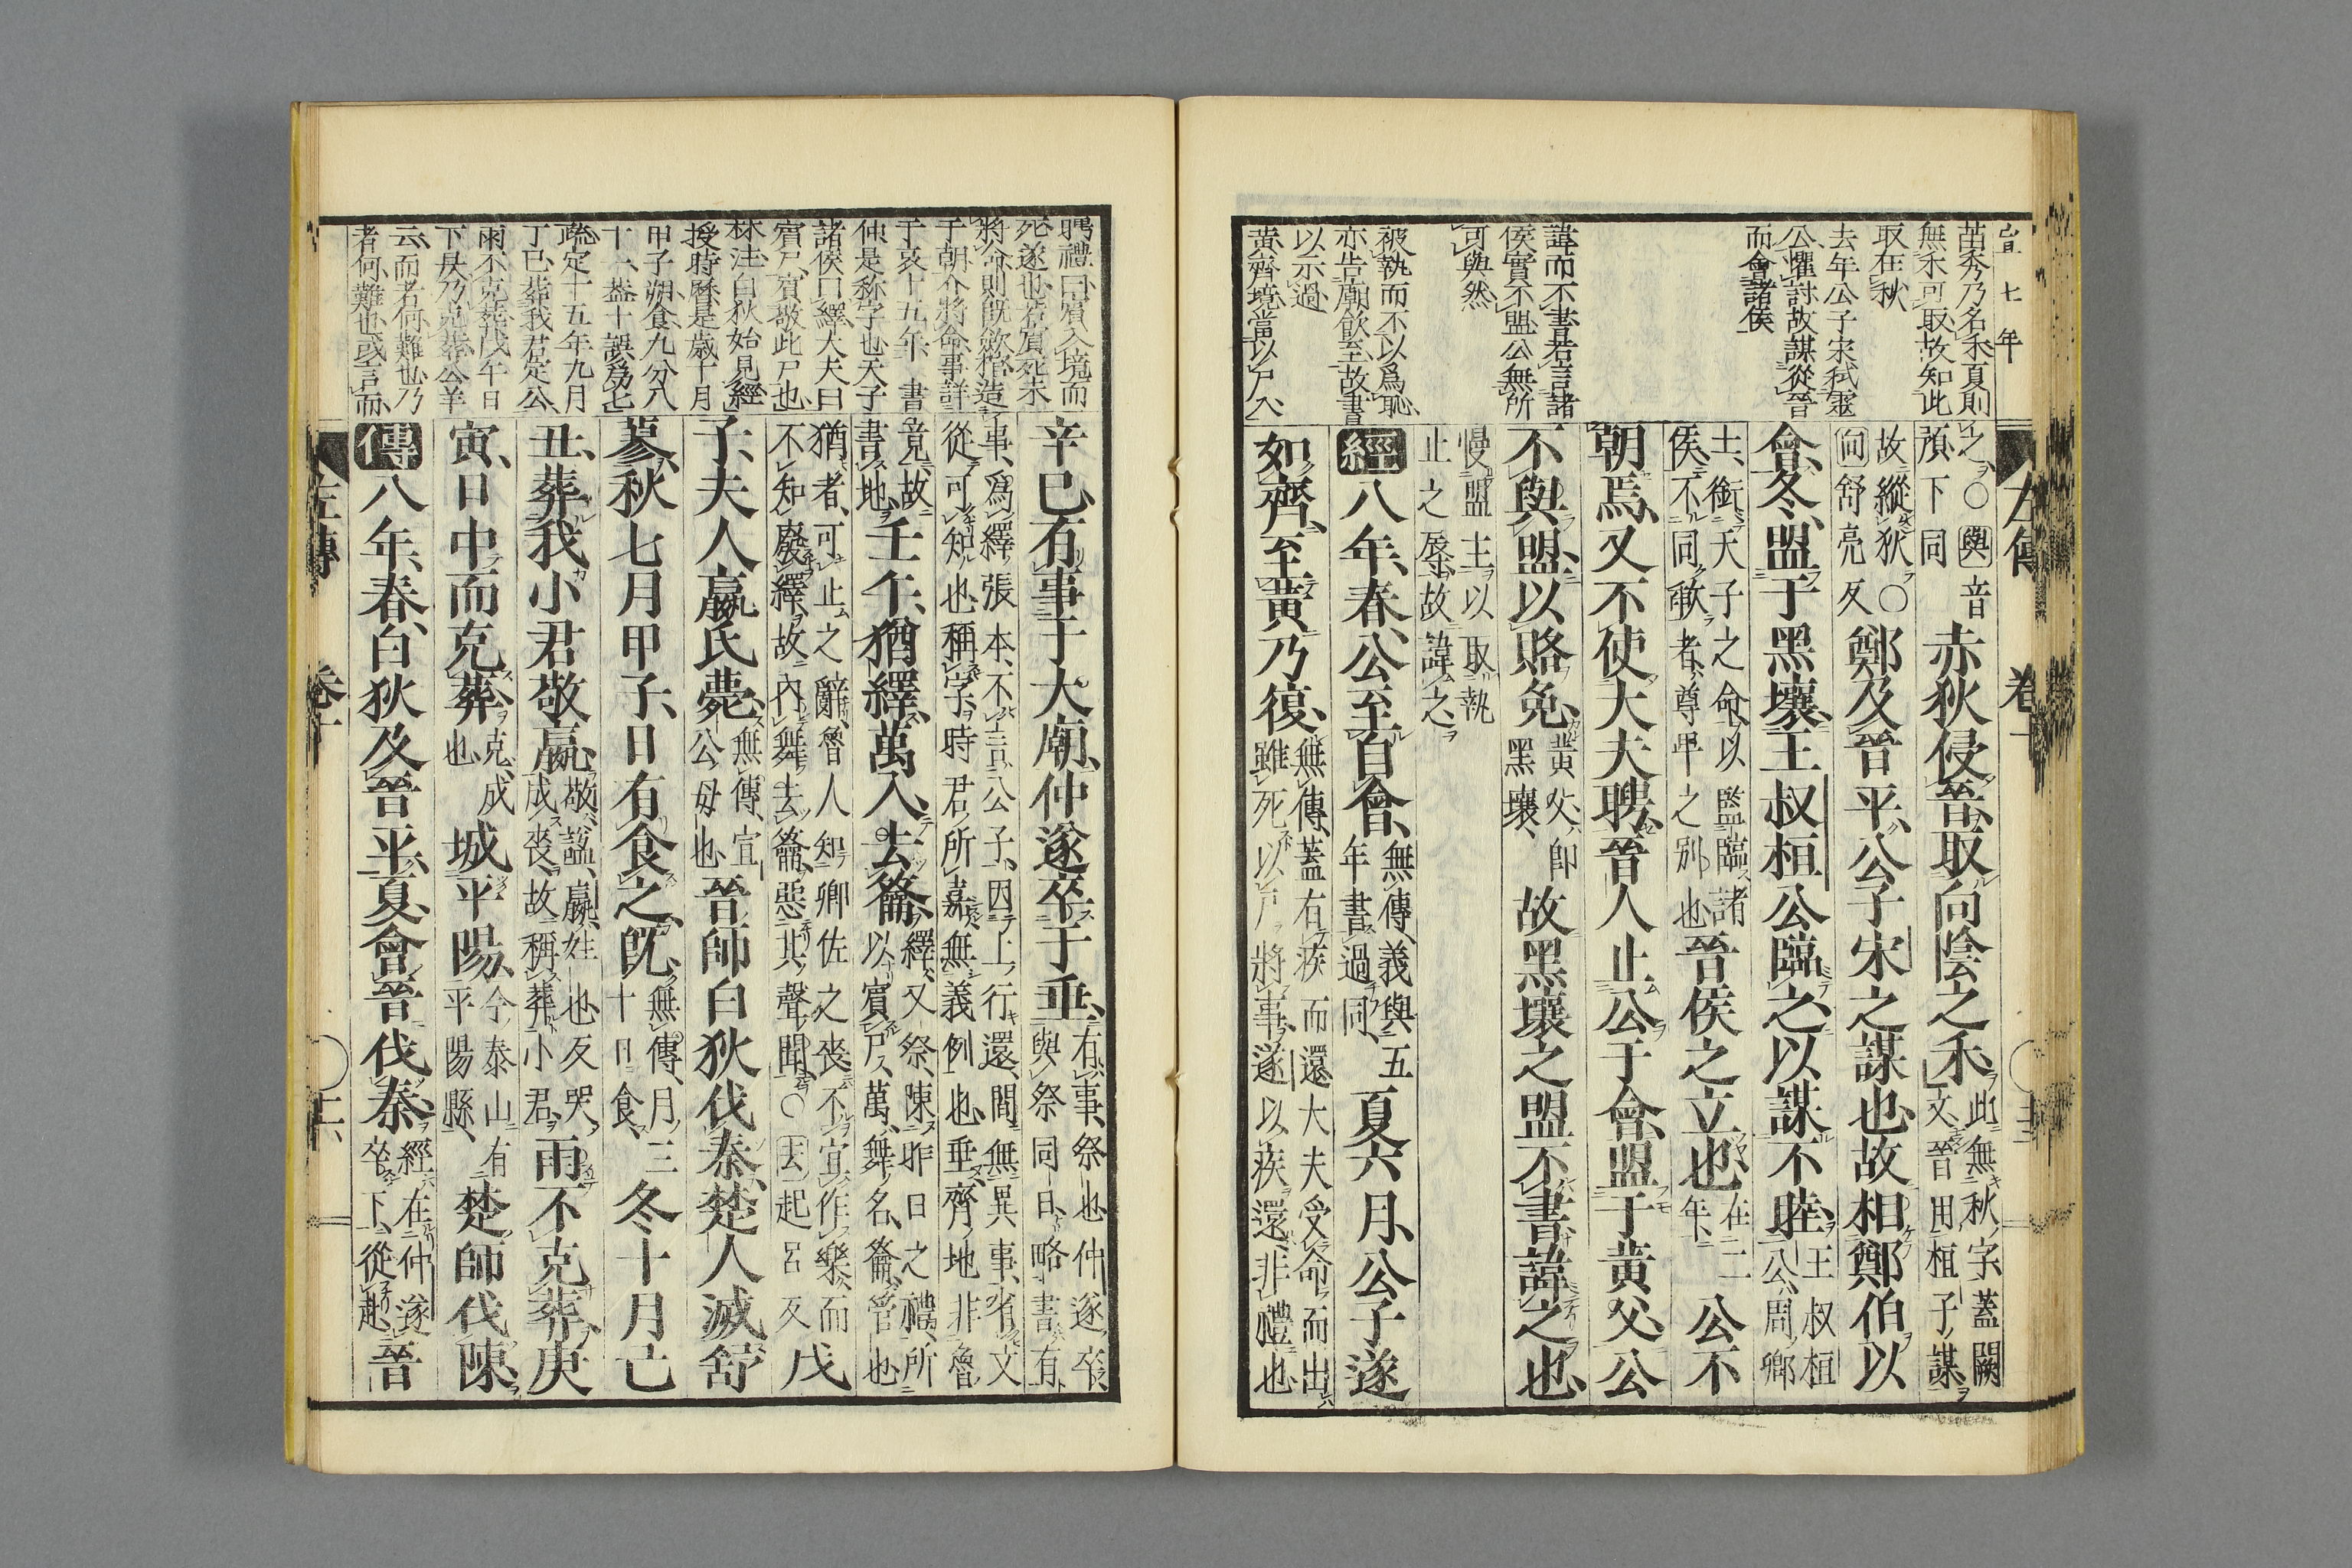 宣七年
苗秀乃名禾夏則
無禾可取故知此
取在秋
去年公子宋弒靈
公懼討故謀從晉
而會諸侯
諱而不書若言諸
侯實不盟公無所
可與然
被執而不以爲恥
亦告廟飲至故書
以示過
黃齊境當以尸入
左傳 卷十
之○與音預下同赤狄侵晉取向陰之禾此無秋字蓋闕文晉用桓子謀
故縱狄○向舒亮反鄭及晉平公子宋之謀也故相鄭伯以
會冬盟于黑壤王叔桓公臨之以謀不睦王叔桓公周卿
士銜天子之命以監臨諸侯不同歃者尊卑之別也晉侯之立也在二年公不
朝焉又不使大夫聘晉人止公于會盟于黃父公
不與盟以賂免黃父即黑壤故黑壤之盟不書諱之也
慢盟主以取執止之辱故諱之
經八年春公至自會無傳義與五年書過同夏六月公子遂
如齊至黃乃復無傳蓋有疾而還大夫受命而出雖死以尸將事遂以疾還非禮也
聘禮曰賓入境而
死遂也若賓死未
將命則旣斂于棺造
于朝介將命事詳
于哀十五年 書
仲是称字也天子
諸侯曰繹大夫曰
賓尸賓敬此尸也
林注白狄始見經
授時曆是歲十月
甲子朔食九分八
十一盖十誤爲七
疏定十五年九月
丁巳葬我君定公
雨不克葬戊午日
下昃乃克葬公羊
云而者何難也乃
者何難也或言而
辛巳有事于大廟仲遂卒于垂有事祭也仲遂卒與祭同日略書有
事爲繹張本不言公子因上行還間無異事省文從可知也稱字時君所嘉無義例也垂齊地非魯
竟故書地壬午猶繹萬入去籥繹又祭陳昨日之禮所以賓尸萬舞名籥管也
猶者可止之辭魯人知卿佐之喪不宜作樂而不知廢繹故內舞去籥惡其聲聞○去起呂反戊
子夫人嬴氏薨無傳宣公母也晉師白狄伐秦楚人滅舒
蓼秋七月甲子日有食之旣無傳月三十日食冬十月己
丑葬我小君敬嬴敬謚嬴姓也反哭成喪故稱葬小君雨不克葬庚
寅日中而克葬克成也城平陽今泰山有平陽縣楚師伐陳
傳八年春白狄及晉平夏會晉伐秦經在仲遂卒下從赴晉
左傳 卷十